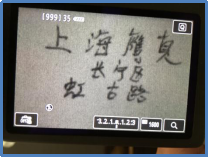 [999]35
上海鹰真
长宁区
虹古路
3..2..1..0..1..2..3
1600